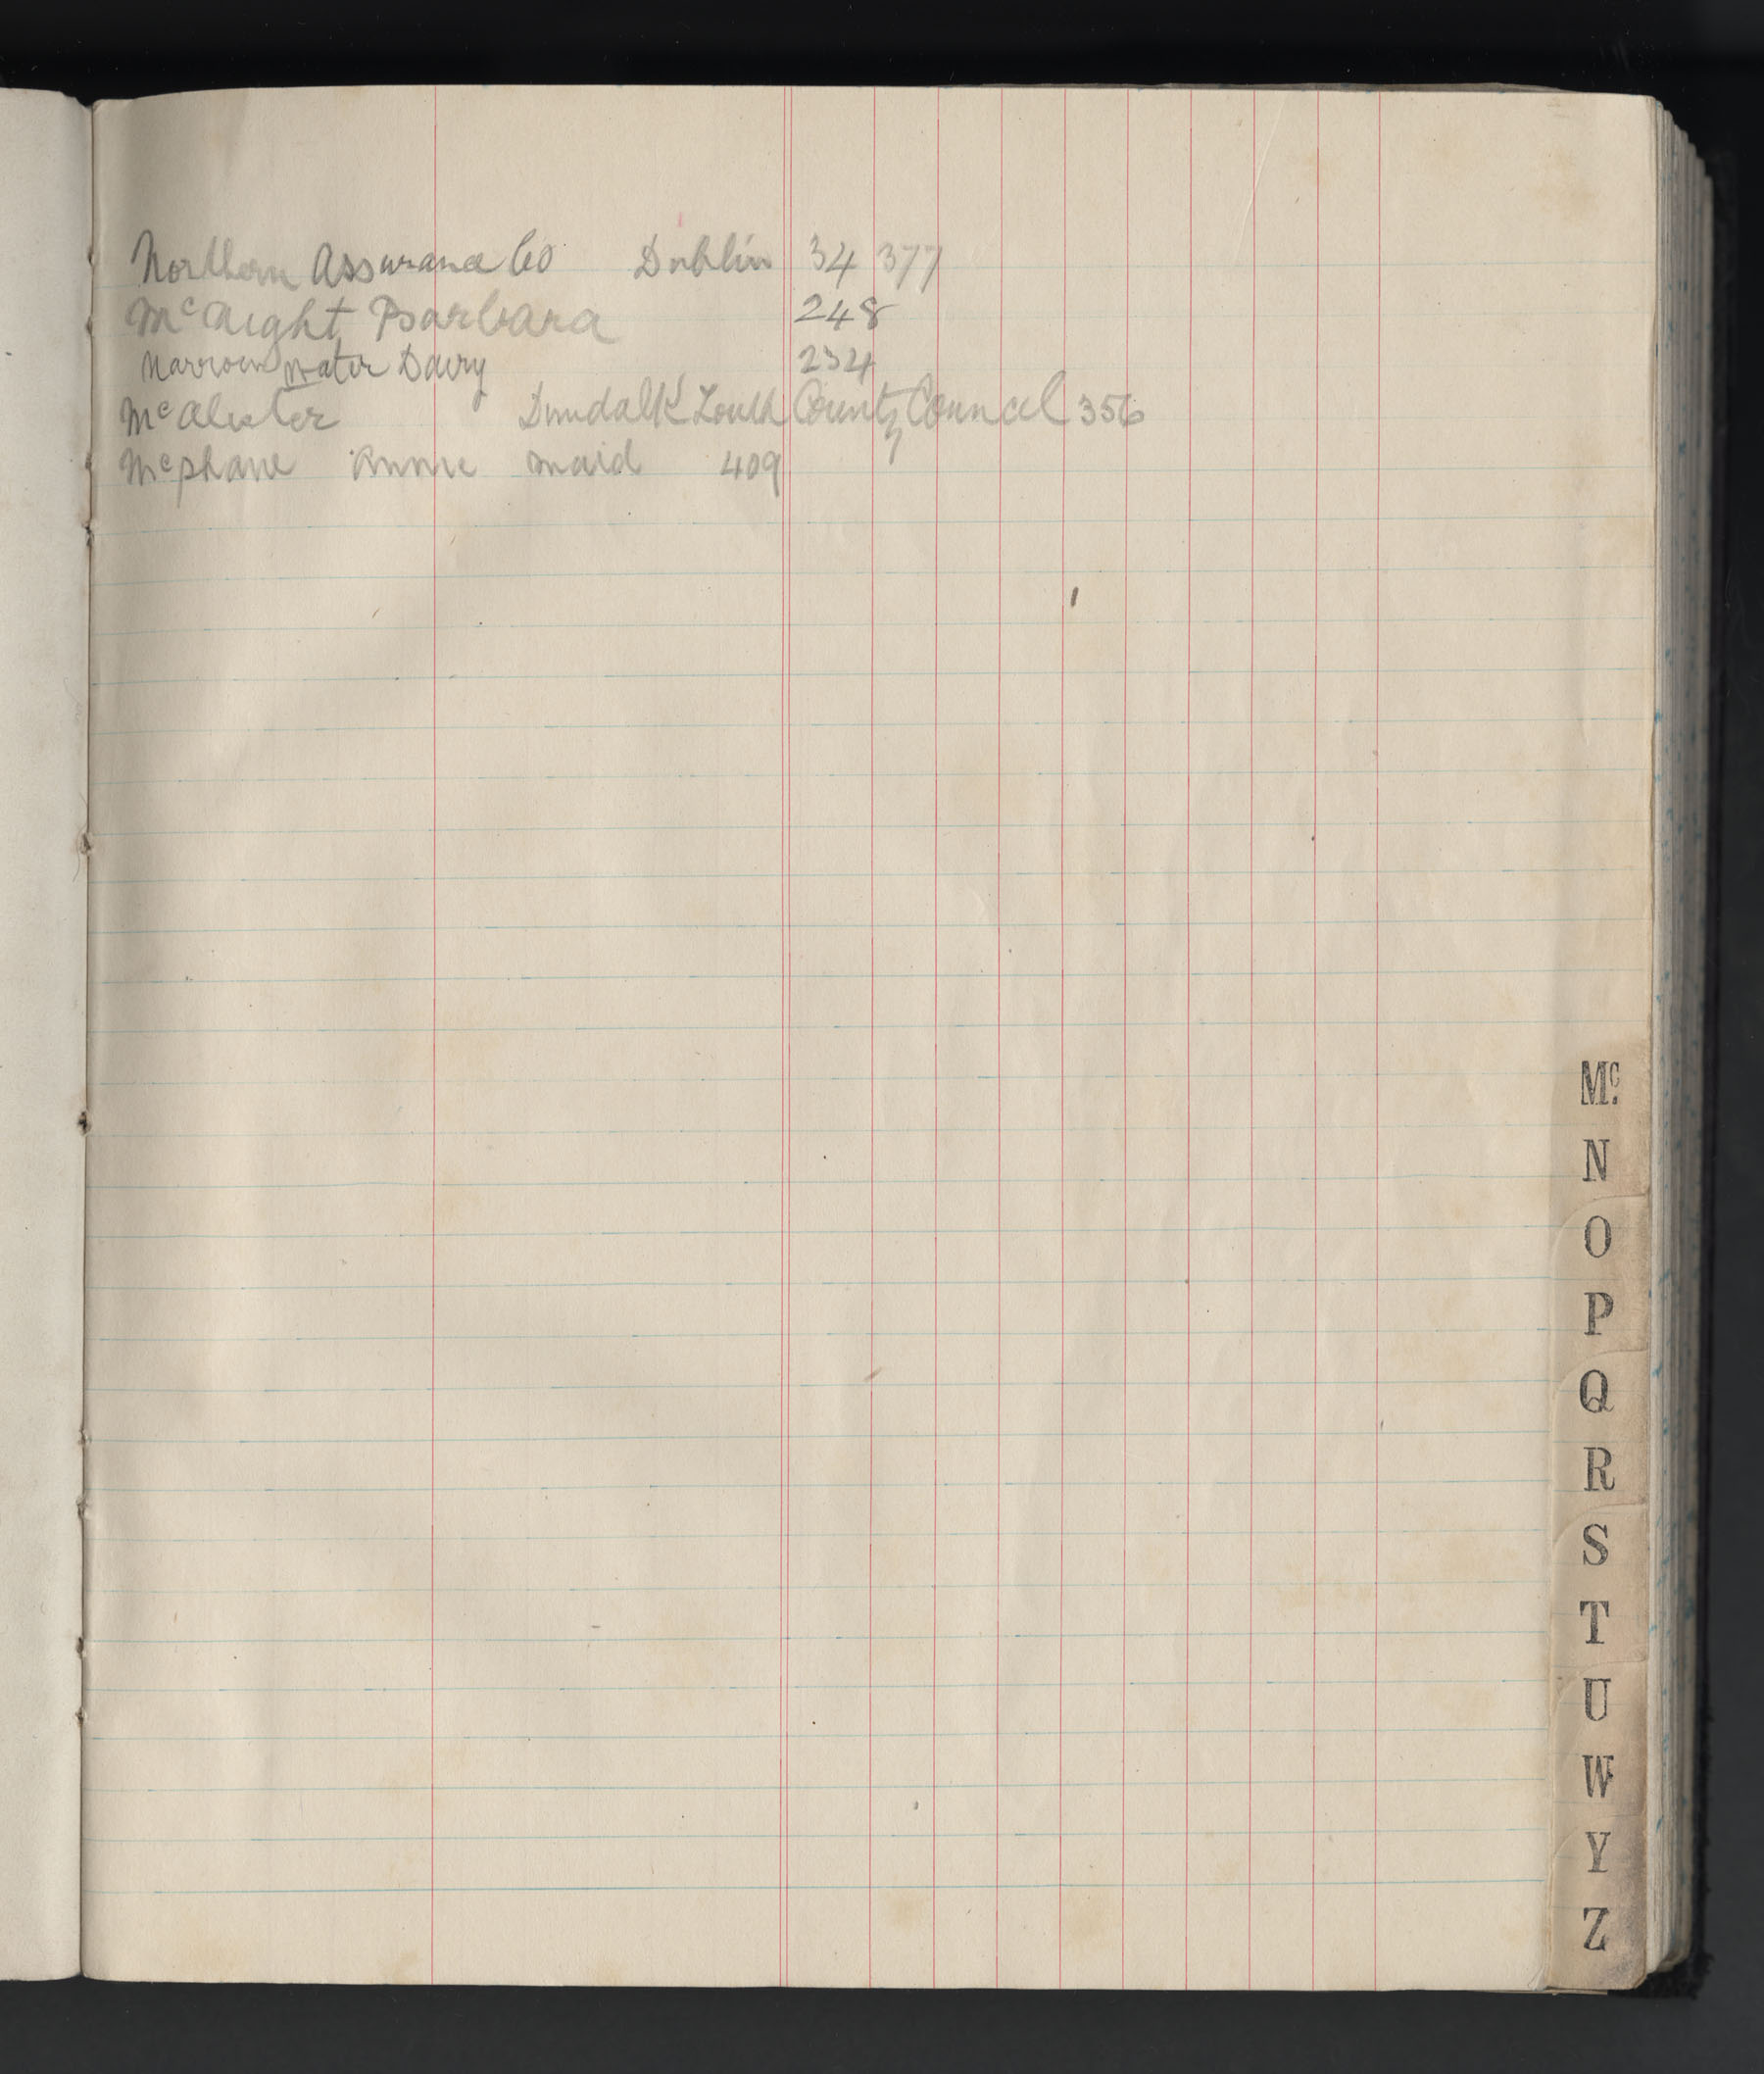 Northern Assurance Co Dublin 34 377
Mc Night Barbara 248
Narrow Water Dairy 234
Mc Alister Dundalk Louth County Council 356
Mc phane Annie maid 409
Mc.
N
O
P
Q
R
S
T
U
W
Y
Z